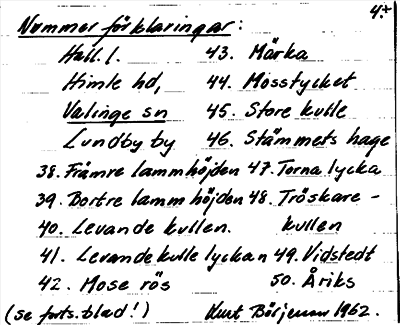 4.
Nummerförklaringar:
Hall. l.
Himle hd,
Valinge sn
Lundby by
38. Främre lammhöjden
39. Bortre lammhöjden
40. Levande kullen.
41. Levandekullelyckan
42. Mose rös
43. Märka
44. Mosstycket
45. Store kulle
46. Stämmets hage
47. Torna lycka
48. Tröskare-
kullen
49. Vidstedt
50. Åriks
(se forts. blad!)
Kurt Börjesson 1962.